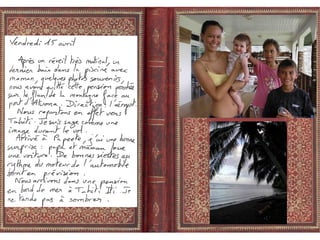 Vendredi 15 avril
Après un réveil très matinal, un
dernier bain dans la piscine avec
maman, quelques photos souvenirs,
nous avons quitté cette pension postée
sur le flanc de la montagne face au
port d'Atuona. Direction l'aéroport.
Nous repartons en effet vers
Tahiti. Je suis sage comme une
image durant le vol.
Arrivé à Papeete, j'ai une bonne
surprise : papa et maman loue
une voiture. De bonnes siestes au
rythme du moteur de l'automobile
sont en prévision.
Nous arrivons dans une pension
en bord de mer à Tahiti Iti. Je
ne tarde pas à sombrer.